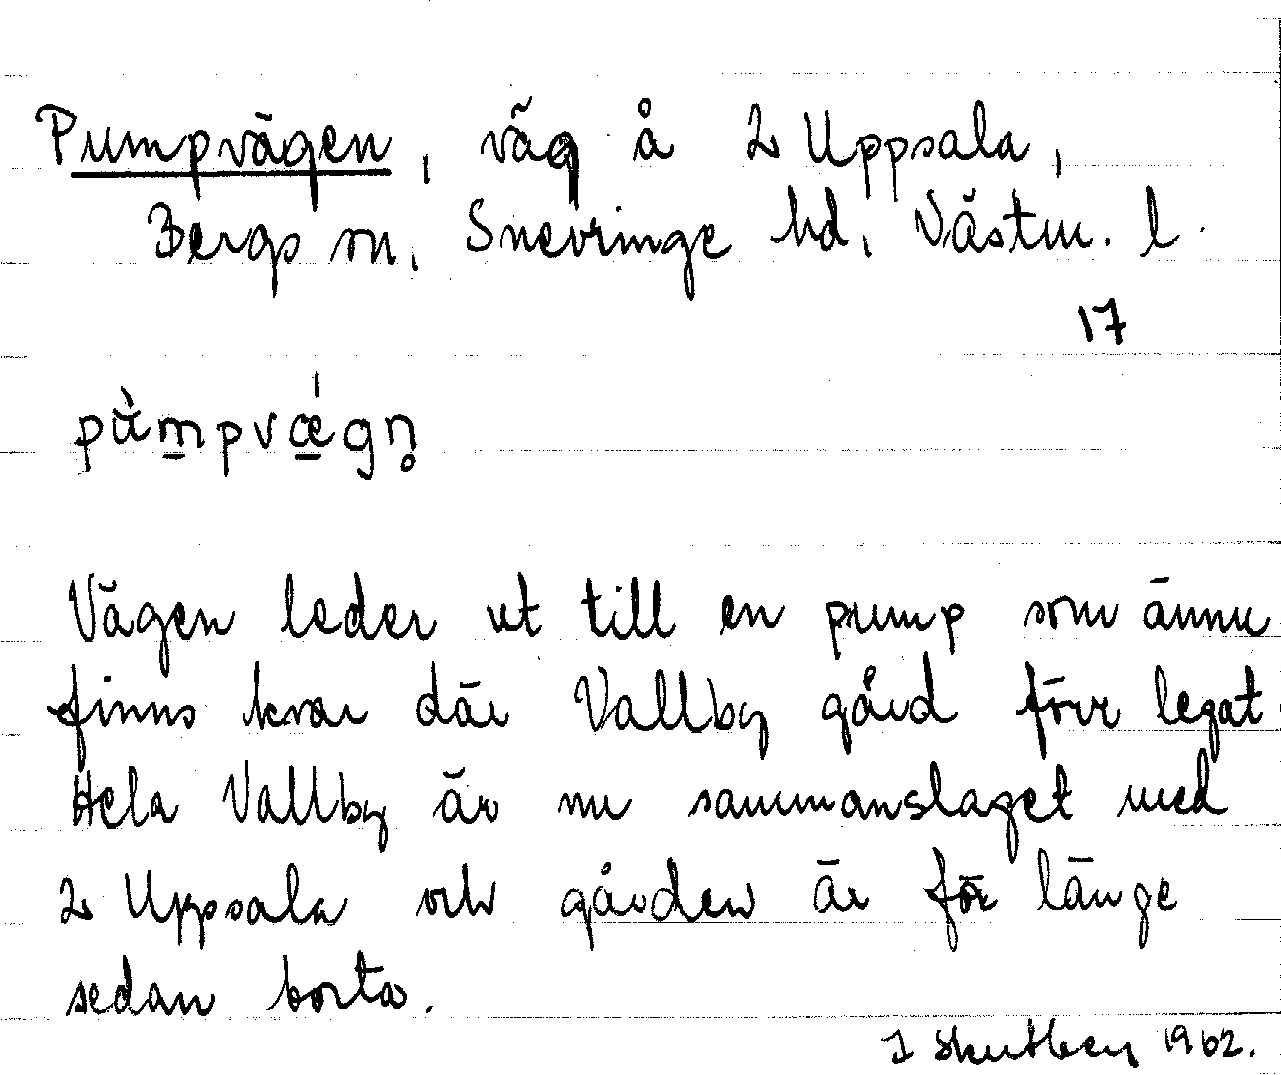 Pumpvägen, väg å 2 Uppsala,
Bergs sn, Snevringe hd, Västm. l.
17
pùmpvǽgn̥
Vägen leder ut till en pump som ännu
finns kvar där Vallby gård förr legat.
Hela Vallby är nu sammanslaget med
2 Uppsala och gården är för länge
sedan borta.
1962.